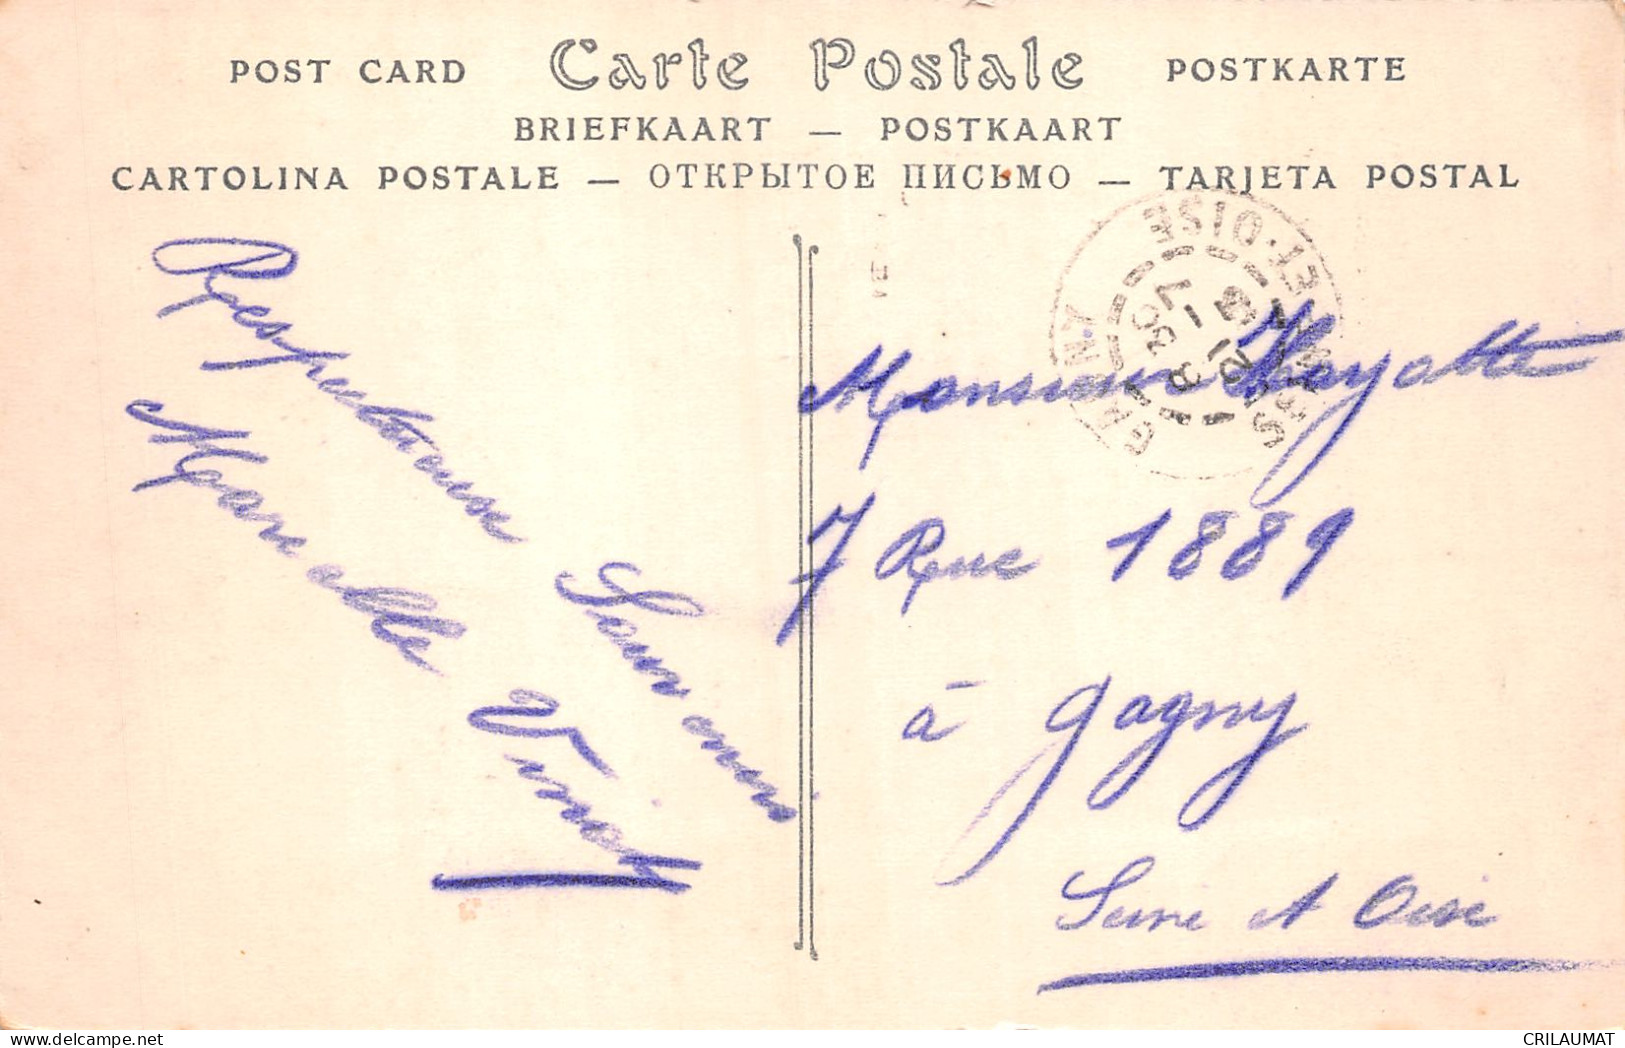 POST CARD Carte Postale POSTKARTE
BRIEFKAART — POSTKAART
CARTOLINA POSTALE — ОТКРЫТОЕ ПИСЬМО — TARJETA POSTAL
Respectueux Souvenirs
Marcelle Vinot
GAGNY
SEINE-ET-OISE
Monsieur Mayotte
7 Rue 1889
à Gagny
Seine et Oise
CRILAUMAT